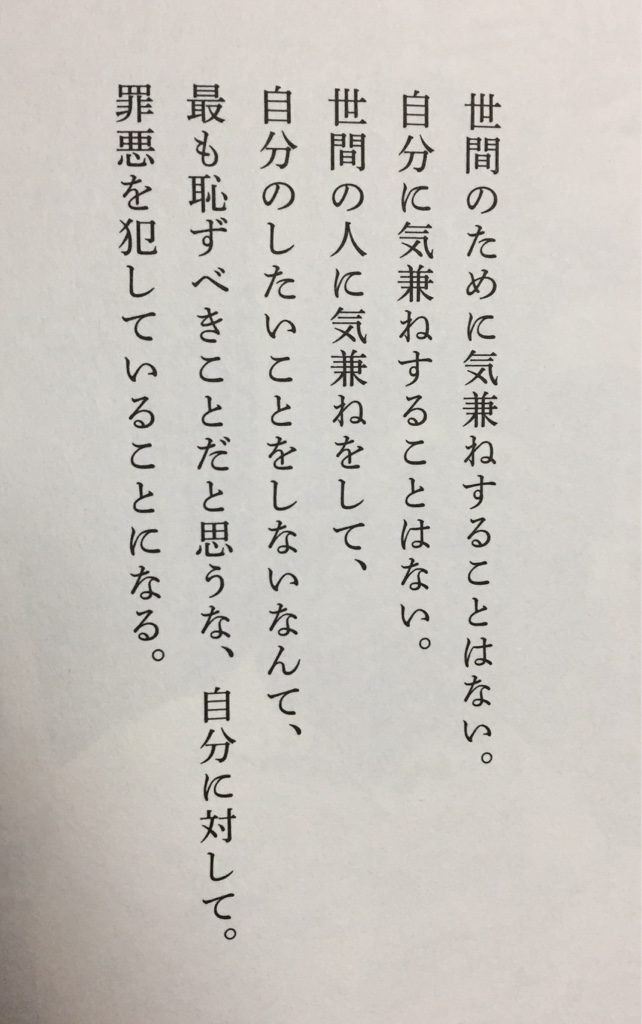 世間のために気兼ねすることはない。
自分に気兼ねすることはない。
世間の人に気兼ねをして、
自分のしたいことをしないなんて、
最も恥ずべきことだと思うな、自分に対して。
罪悪を犯していることになる。